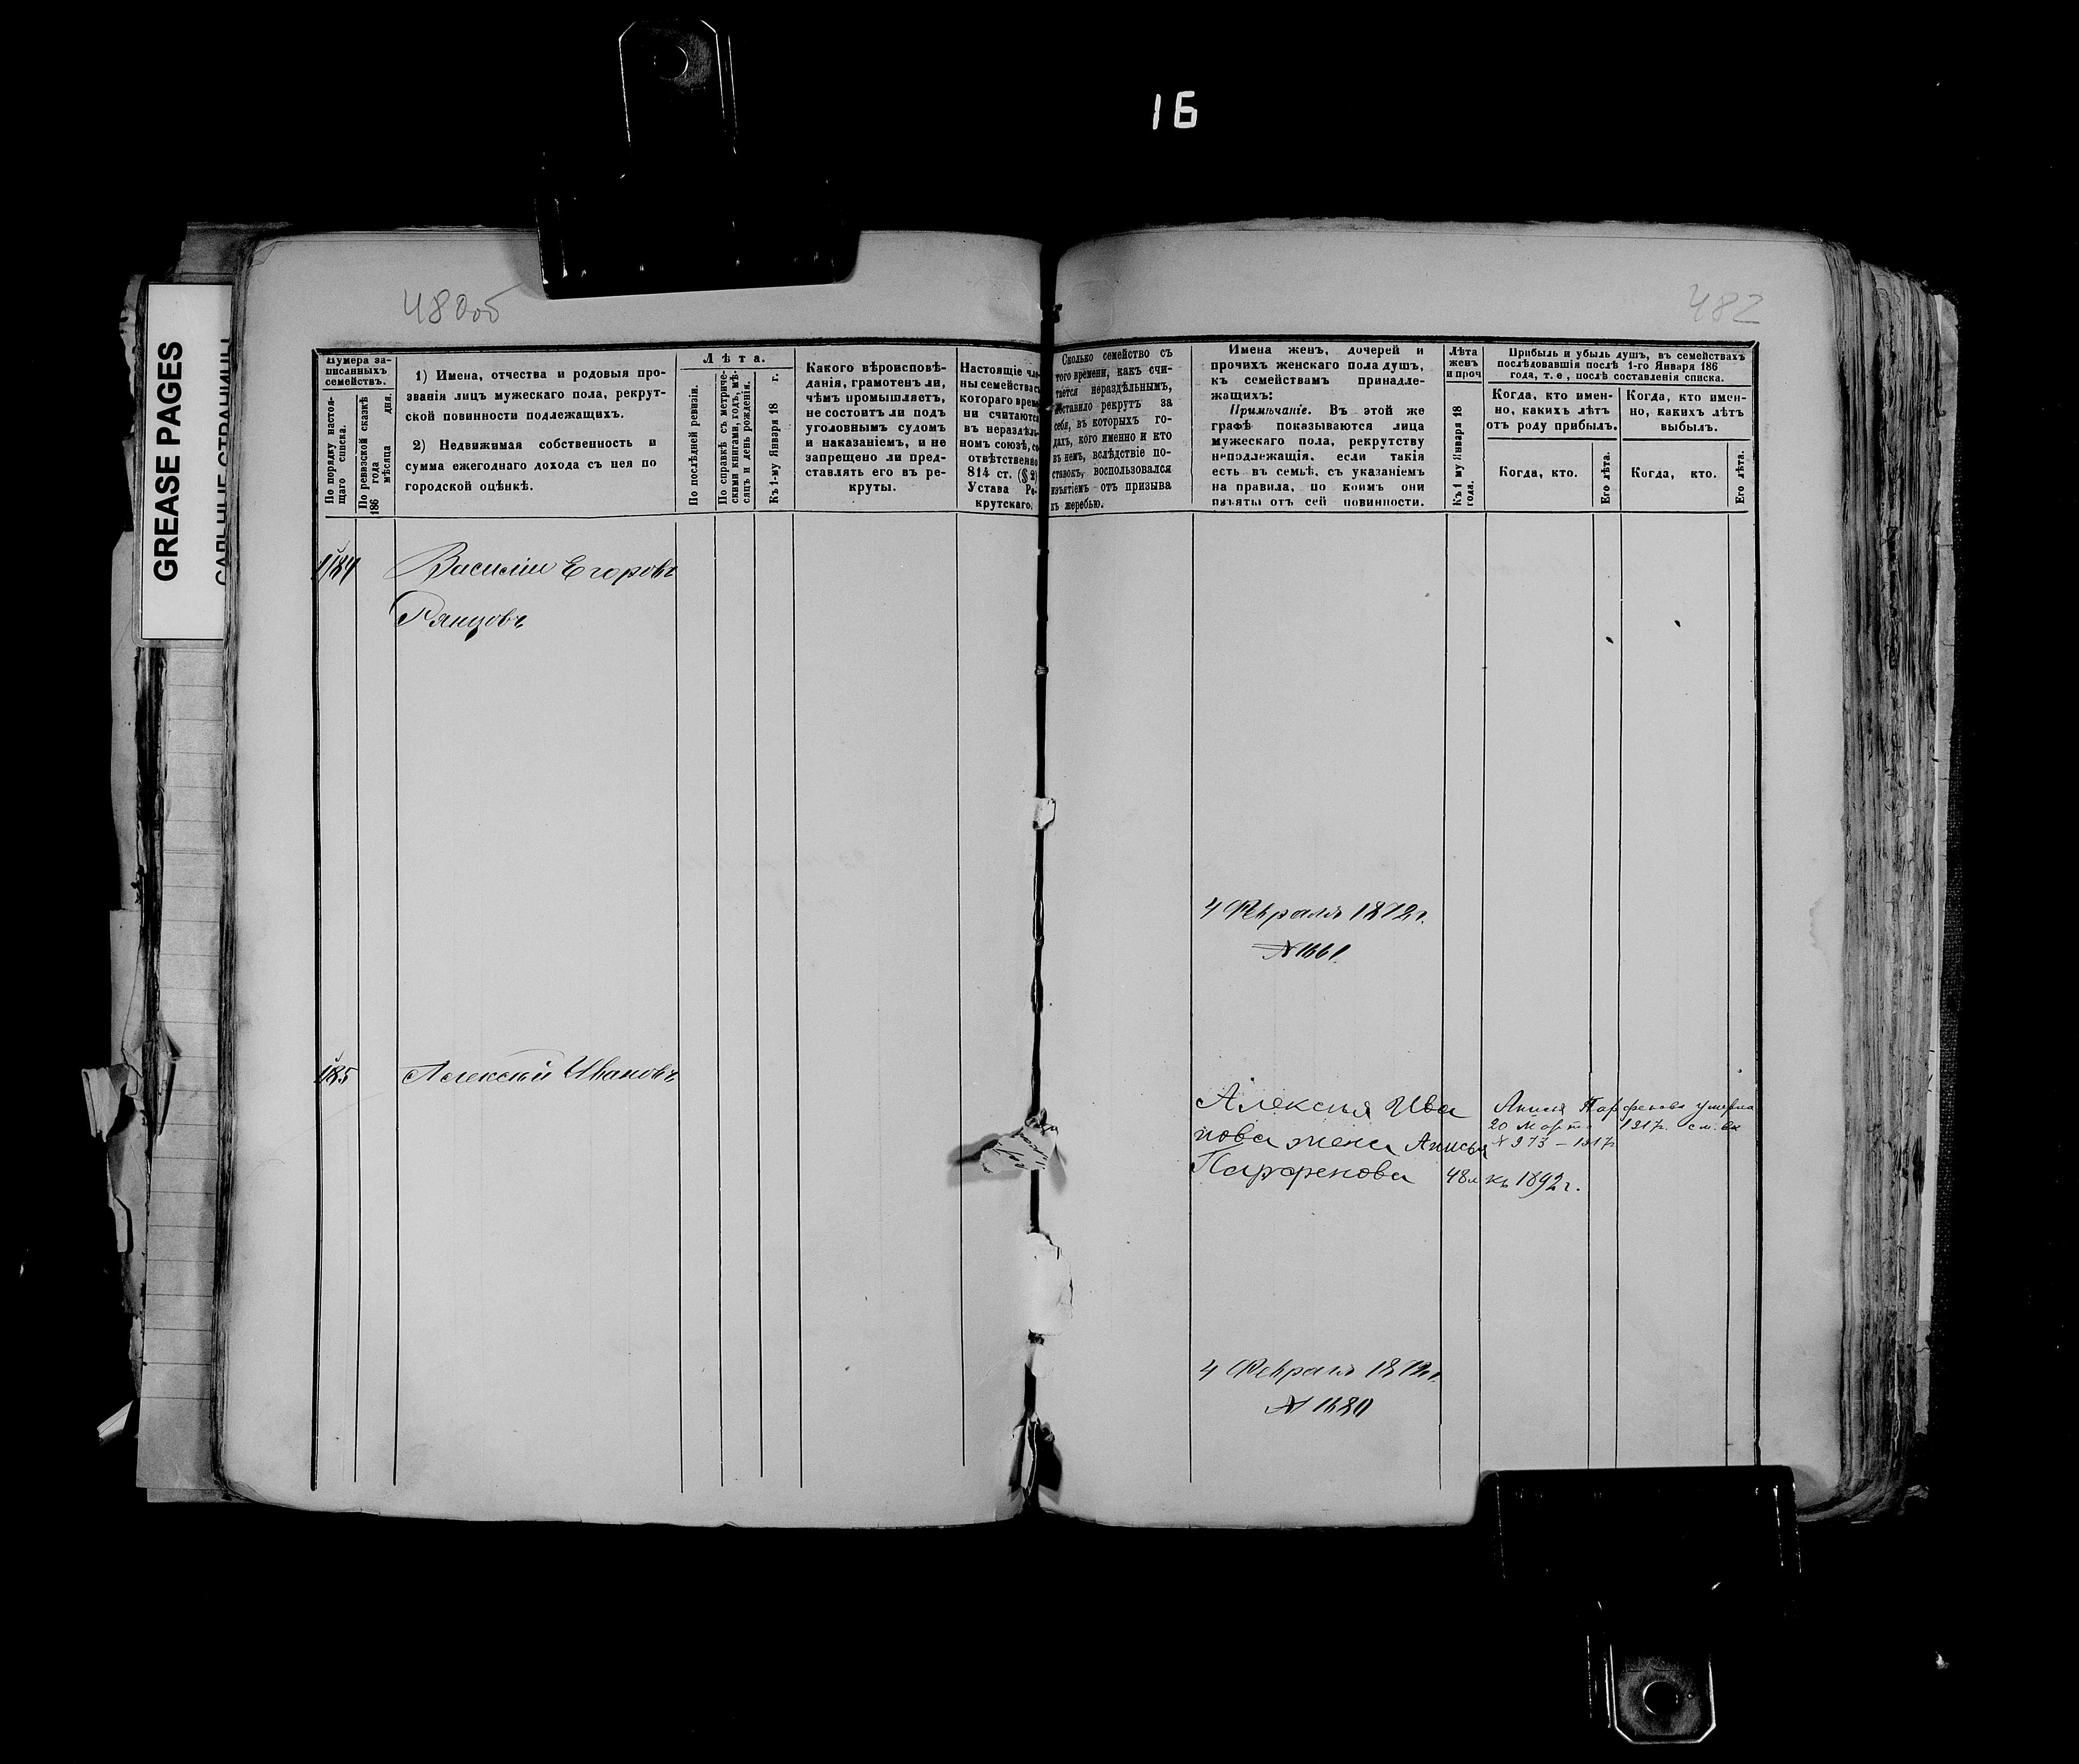 16
GREASE PAGES
482
Нумера за-
писанныхъ
семействъ.
По порядку настоя-
щаго списка.
По ревизской сказкѣ
186 года
мѣсяца дня.
1) Имена, отчества и родовыя про-
званія лицъ мужескаго пола, рекрут-
ской повинности подлежащихъ.
2) Недвижимая собственность и
сумма ежегоднаго дохода съ нея по
городской оцѣнкѣ.
Лѣта.
По послѣдней ревизіи.
По справкѣ съ метриче-
скими книгами, годъ, мѣ-
сяцъ и день рожденія.
Къ 1-му Января 18 г.
Какого вѣроисповѣ-
данія, грамотенъ ли,
чѣмъ промышляетъ,
не состоитъ ли подъ
уголовнымъ судомъ
и наказаніемъ, и не
запрещено ли пред-
ставлять его въ ре-
круты.
Настоящіе чле-
ны семейства съ
котораго време
ни считаются
въ нераздѣль
номъ союзѣ, со
отвѣтственно
814 ст. (§ 2)
Устава Ре-
крутскаго.
Сколько семейство съ
того времени, какъ счи-
тается нераздѣльнымъ,
поставило рекрутъ за
себя, въ которыхъ го-
дахъ, кого именно и кто
въ немъ, вслѣдствіе по-
ставокъ, воспользовался
изъятіемъ отъ призыва
къ жеребью.
Имена женъ, дочерей и
прочихъ женскаго пола душъ,
къ семействамъ принадле-
жащихъ:
Примѣчаніе. Въ этой же
графѣ показываются лица
мужескаго пола, рекрутству
неподлежащія, если такія
есть въ семьѣ, съ указаніемъ
на правила, по коимъ они
изъяты отъ сей повинности.
Лѣта
женъ
и проч
Къ 1 му Января 18
года.
Прибыль и убыль душъ, въ семействахъ
послѣдовавшія послѣ 1-го Января 186
года, т. е, послѣ составленія списка.
Когда, кто имен-
но, какихъ лѣтъ
отъ роду прибылъ.
Когда, кто имен-
но, какихъ лѣтъ
выбылъ.
Когда, кто.
Его лѣта.
Когда, кто.
Его лѣта.
Василій Егоровъ
Рянцовъ
4 Февраля 1872 г.
№ 1661
Алексѣй Ивановъ
Алексѣя Ива
нова жена Анисья
Парфенова 48 л къ 1892 г.
Анисья Парфенова умерла
20 Марта 1917 г. см. вх
№ 273 – 1917
4 Февраля 1872 г.
№ 1680